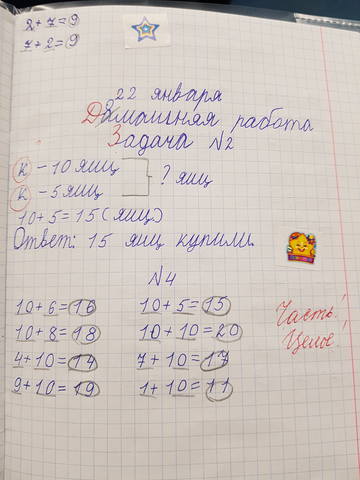 2 + 7 = 9
7 + 2 = 9
22 января
Домашняя работа
Задача №2
К - 10 яиц
? яиц
К - 5 яиц
10 + 5 = 15 (яиц)
Ответ: 15 яиц купили.
№4
10 + 6 = 16 10 + 5 = 15
10 + 8 = 18 10 + 10 = 20
4 + 10 = 14 7 + 10 = 17
9 + 10 = 19 1 + 10 = 11
Часть!
Целое!